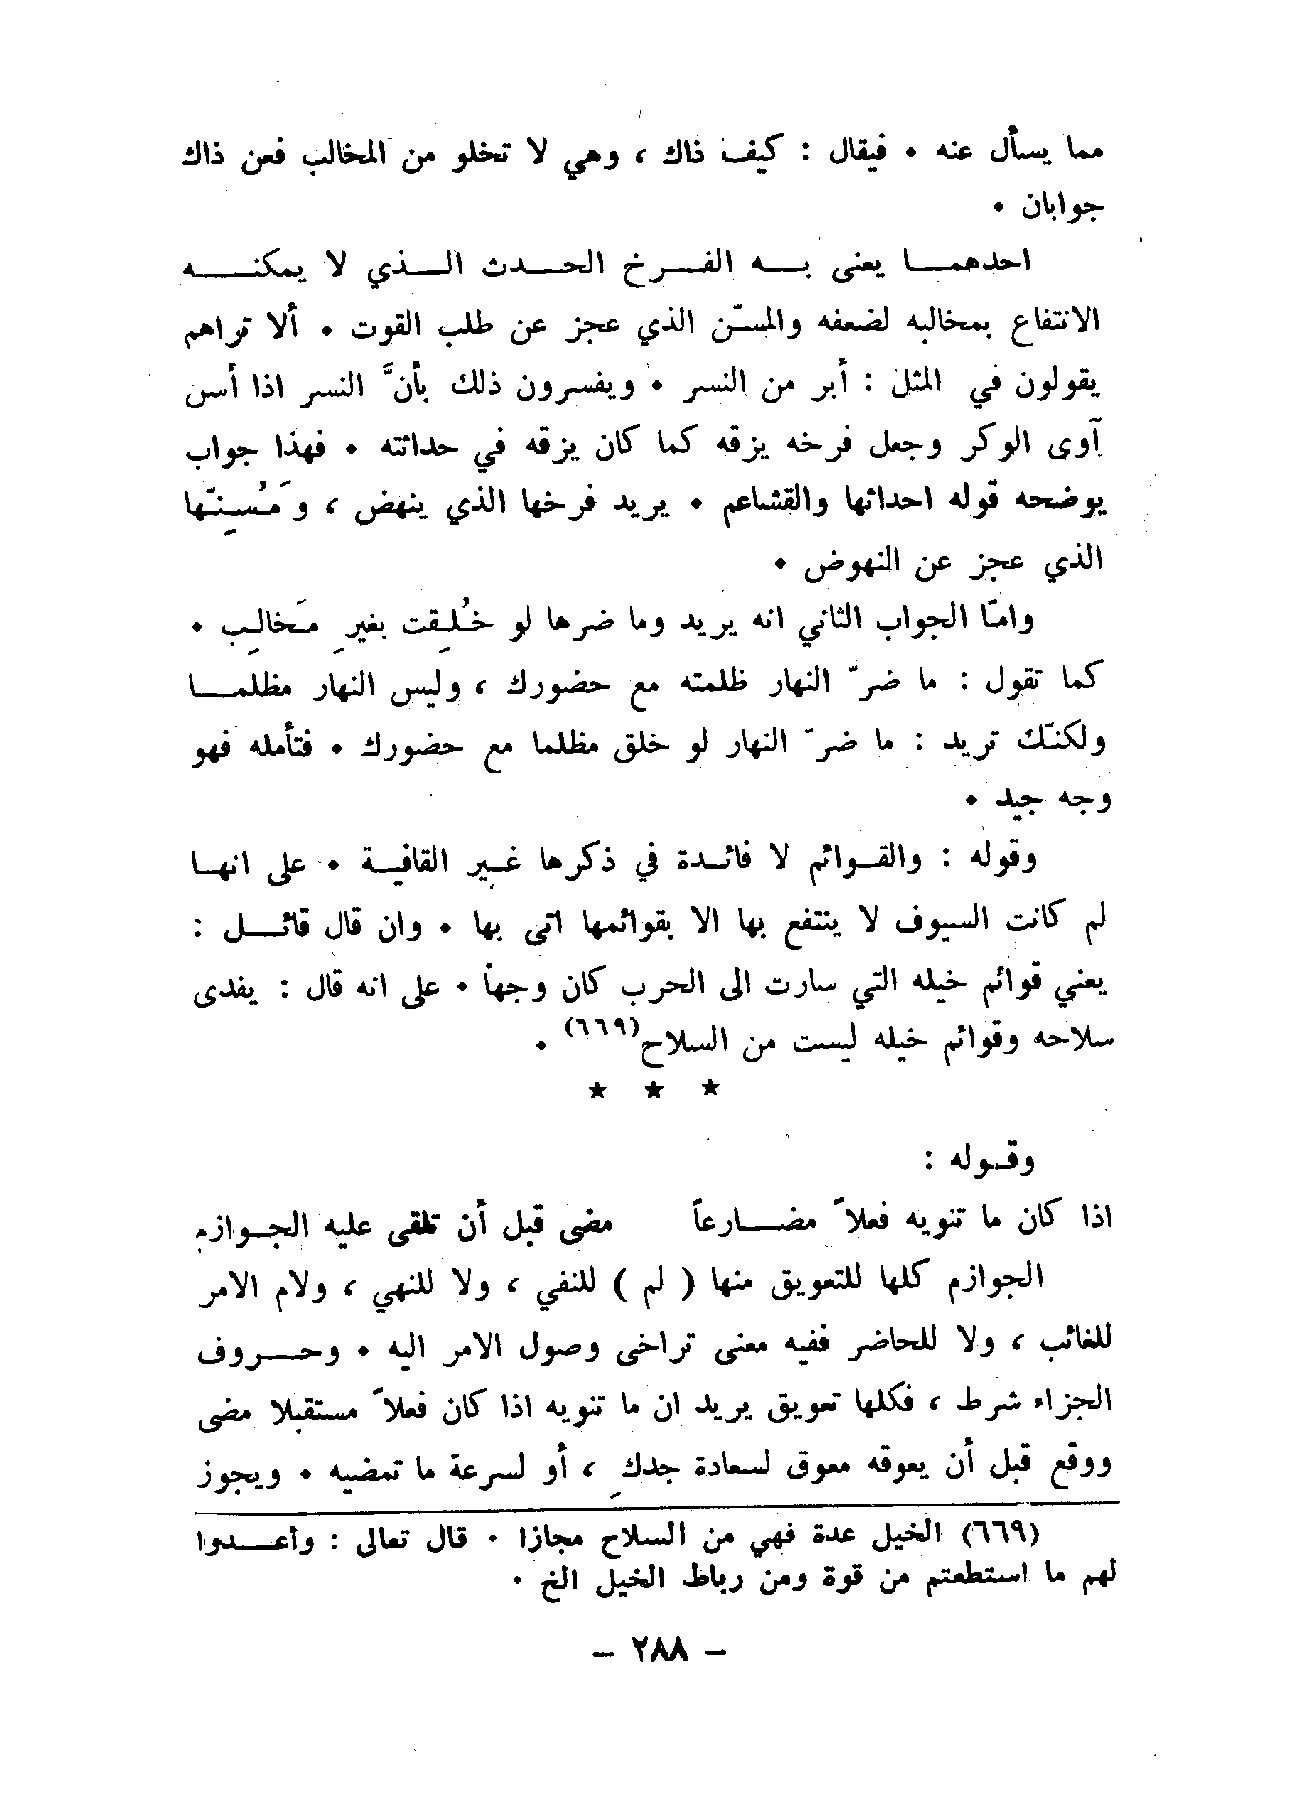 مما يسأل عنه • فيقال : كيف ذاك ، وهي لا تخلو من المخالب فعن ذاك
جوابان •
احدهمــا يعنى بــه الفــرخ الحــدث الــذي لا يمكنــه
الانتفاع بمخالبه لضعفه والمسّن الذي عجز عن طلب القوت • ألا تراهم
يقولون في المثل : أبر من النسر • ويفسرون ذلك بأنَّ النسر اذا أسن
آوى الوكر وجعل فرخه يزقه كما كان يزقه في حداثته • فهذا جواب
يوضحه قوله احداثها والقشاعم • يريد فرخها الذي ينهض ، وَمُسِنّها
الذي عجز عن النهوض •
وامّا الجواب الثاني انه يريد وما ضرها لو خُلِقت بغيرِ مَخالِب •
كما تقول : ما ضرّ النهار ظلمته مع حضورك ، وليس النهار مظلمــا
ولكنّك تريد : ما ضرّ النهار لو خلق مظلما مع حضورك • فتأمله فهو
وجه جيد •
وقوله : والقــوائم لا فائــدة في ذكرها غــير القافيــة • على انهــا
لم كانت السيوف لا ينتفع بها الا بقوائمها اتى بها • وان قال قائــل :
يعني قوائم خيله التي سارت الى الحرب كان وجهاً • على انه قال : يفدى
سلاحه وقوائم خيله ليست من السلاح(٦٦٩) •
★ ★ ★
وقــوله :
اذا كان ما تنويه فعلاً مضــارعاً مضى قبل أن تلقى عليه الجــوازم
الجوازم كلها للتعويق منها ( لم ) للنفي ، ولا للنهي ، ولام الامر
للغائب ، ولا للحاضر ففيه معنى تراخى وصول الامر اليه • وحــروف
الجزاء شرط ، فكلها تعويق يريد ان ما تنويه اذا كان فعلاً مستقبلا مضى
ووقع قبل أن يعوقه معوق لسعادة جدكِ ، أو لسرعة ما تمضيه • ويجوز
(٦٦٩) الخيل عدة فهي من السلاح مجازا • قال تعالى : وأعــدوا
لهم ما استطعتم من قوة ومن رباط الخيل الخ •
– ٢٨٨ –